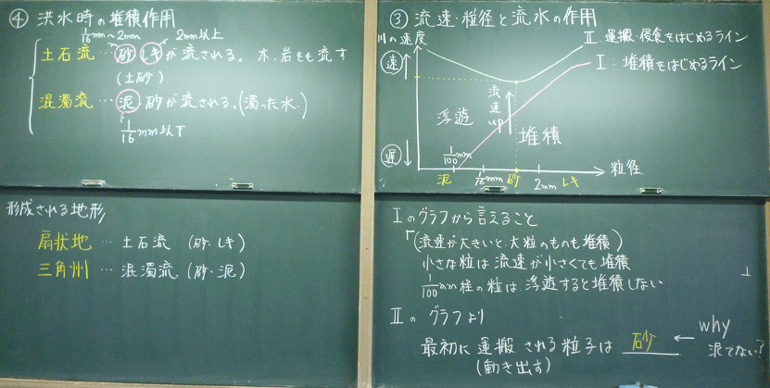 ④ 洪水時の堆積作用
1/16mm~2mm 2mm以上
土石流…砂レキが流される。木、岩をも流す
(土砂)
混濁流…泥、砂が流される。(濁った水)
1/16mm以下
形成される地形
扇状地…土石流(砂・レキ)
三角州…混濁流(砂・泥)
③ 流速・粒径と流水の作用
川の速度
Ⅱ:運搬・侵食をはじめるライン
Ⅰ:堆積をはじめるライン
速
浮遊
流速up
堆積
遅
1/100mm
泥 1/16mm 砂 2mm レキ
粒径
Ⅰのグラフから言えること
(流速が大きいと、大粒のものも堆積)
小さな粒は流速が小さくても堆積
1/100mm程の粒は、浮遊すると堆積しない
Ⅱの グラフより
最初に運搬される粒子は 砂 ← why
(動き出す) 泥でない?